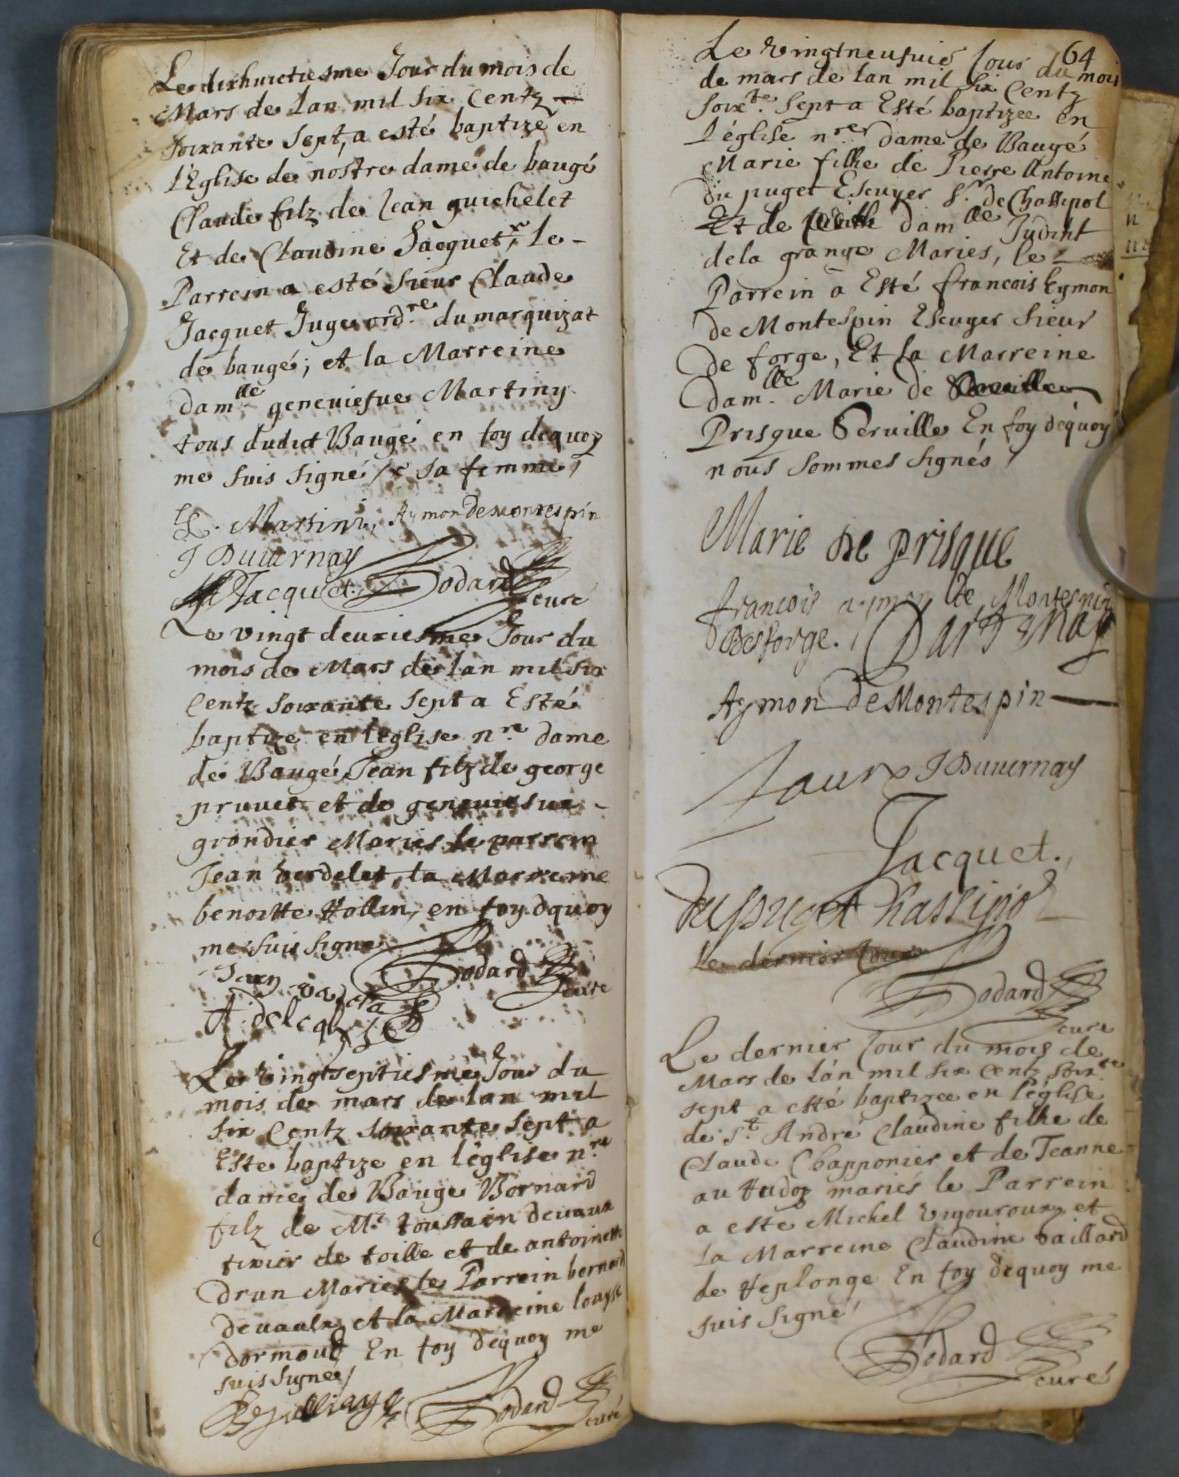 Le dixhuictiesme Jour du mois de
Mars de Lan mil six Centz
soixante Sept, a esté baptizé en
L'Eglise de nostre dame de baugé
Claude filz de Jean guichelet
Et de Claudine Jacquet, Le
Parrein a esté Sieur Claude
Jacquet Juge ordre du marquizat
de baugé; et la Marreine
damlle geneuiefue Martiny
tous dudict Baugé en foy dequoy
me suis signé sa femme
Martini Aymon de montespin
J Duuernay
Jacquet Bodard
curé
Le vingt deuxiesme Jour du
mois de Mars de Lan mil six
Centz soixante sept a Esté
baptize en l'eglise nre dame
de Baugé Jean filz de george
pruuet et de geneuiesue
grondier Mariés le parrein
Jean verdelet, la Marreine
benoitte Hollin, en foy dquoy
me suis signe
Bodard
curé
Le vingtseptiesme Jour du
mois de mars de Lan mil
six Centz soixante Sept a
Este baptize en l'eglise nre
dame de Bauge Bernard
filz de Mr toussain deuaux
tixier de toille et de antoinette
drun Maries le Parrein bernard
deuaulx et la Marreine louyse
dormoud En foy dequoy me
suis Signe
Bodard
curé
64
Le vingtneufuie Jour du mois
de mars de Lan mil six Centz
soixte Sept a Esté baptizee en
L'église nre dame de Baugé
Marie fille de Pierre Antoine
du puget Escuyer Sr de Chassipol
Et de damlle Judint
de la grange Maries, le
Parrein a Esté francois Eymon
de Montespin Escuyer Sieur
de forge, Et La Marreine
damlle Marie de
Prisque Seruille En foy dequoy
nous sommes signés
Marie de prisque
francois aymon de Montespin
Desforge.
Aymon de Montespin
J Duuernay
Jacquet.
du puget Chassipol
Le dernier Jour
Bodard
curé
Le dernier Jour du mois de
Mars de lán mil six Centz soixte
sept a esté baptizee en l'église
de St André Claudine fille de
Claude Chapponier et de Jeanne
au tudoz maries le Parrein
a esté Michel vigouroux et
la Marreine Claudine Paillard
de Replonge En foy dequoy me
suis Signé
Bodard
curé